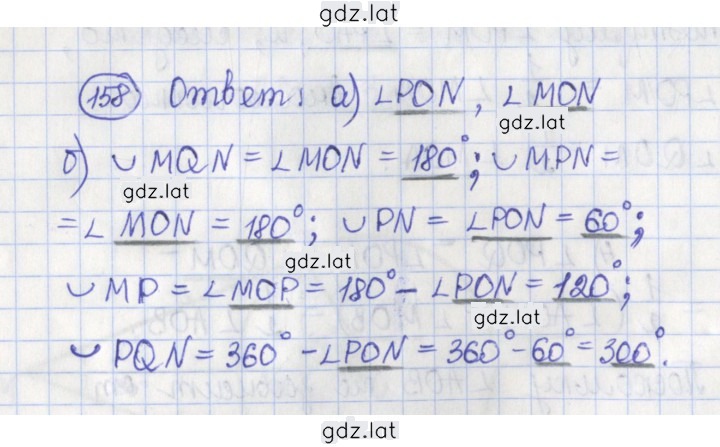 gdz.lat
158 Ответ: а) ∠PON, ∠MON
gdz.lat
б) ◡ MQN = ∠MON = 180°; ◡ MPN =
gdz.lat
= ∠ MON = 180°; ◡ PN = ∠PON = 60°;
gdz.lat
◡ MP = ∠MOP = 180° - ∠PON = 120°;
gdz.lat
◡ PQN = 360° - ∠PON = 360° - 60° = 300°.
gdz.lat